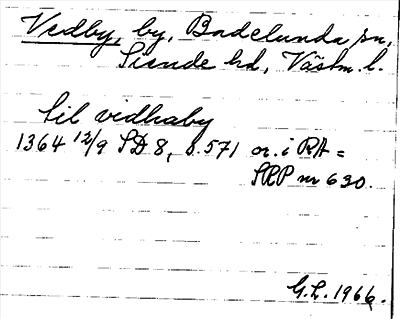 Vedby, by, Badelunda sn,
Siende hd, Västm. l.
til vidhaby
1364 12/9 SD 8, s. 571 or. i RA =
SRP nr 630.
G.L. 1966.